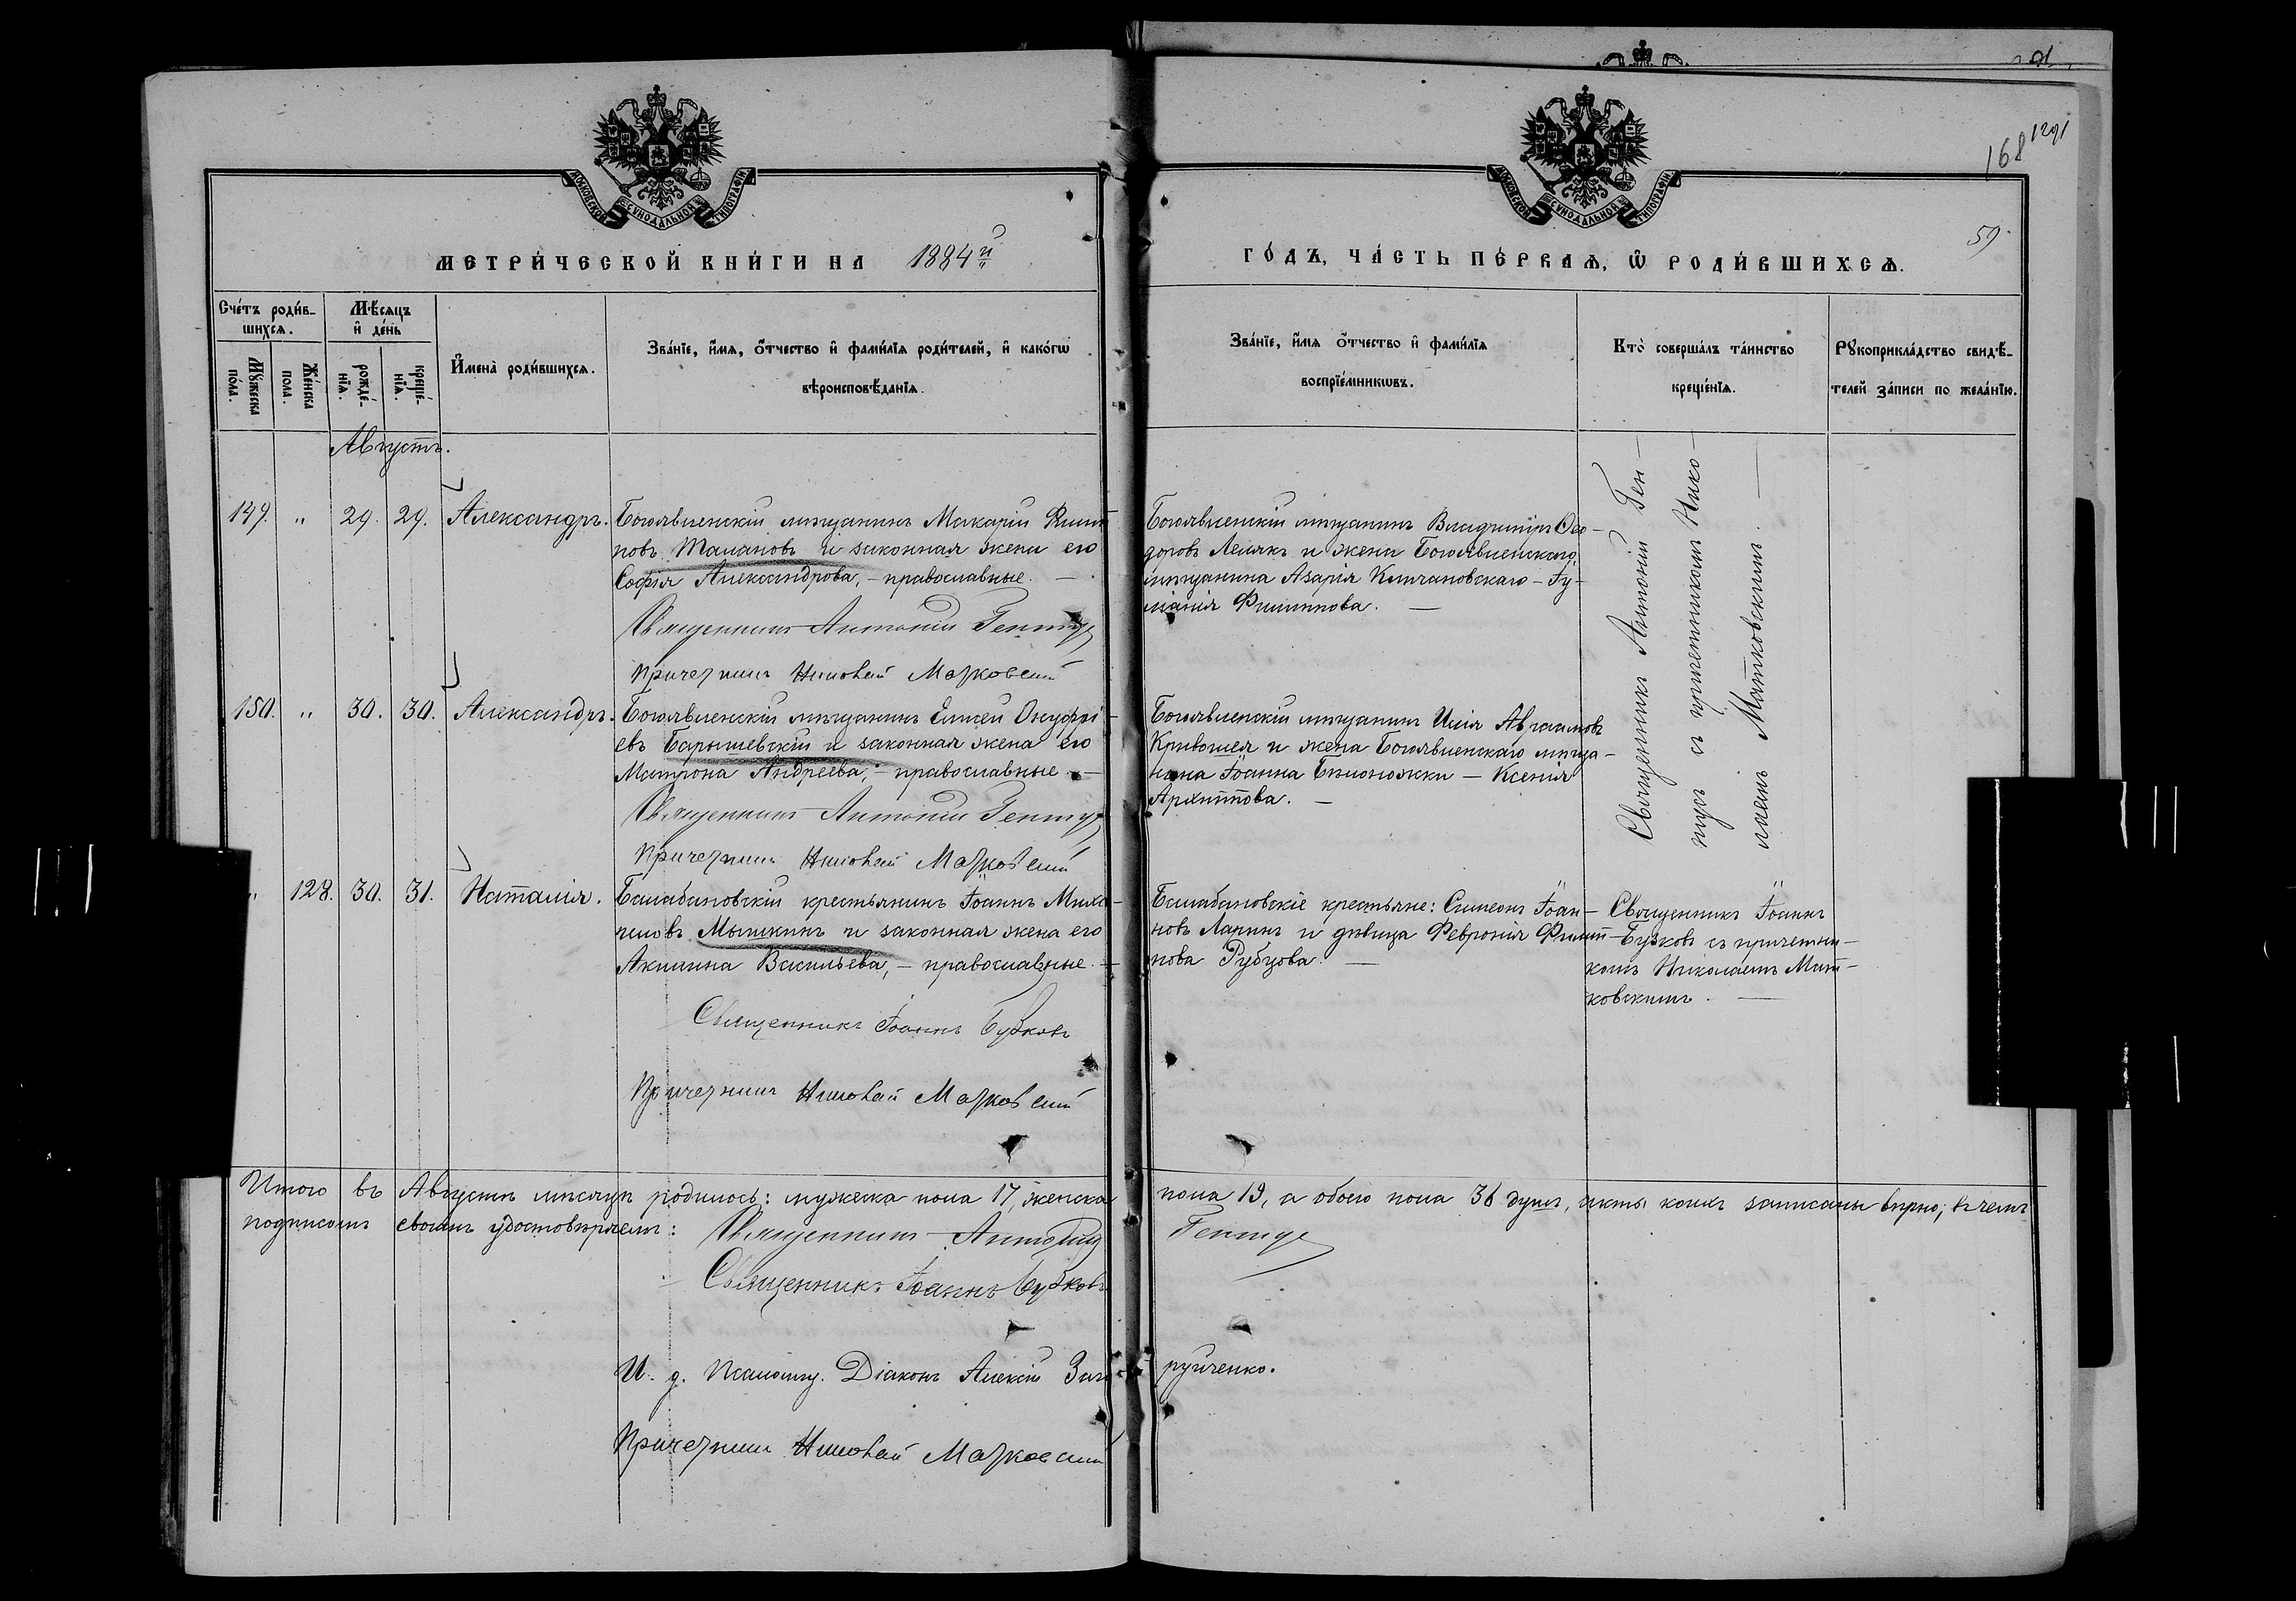 91
МОСКОВСКОЙ СѴНОДАЛЬНОЙ ТИПОГРАФІИ
МОСКОВСКОЙ СѴНОДАЛЬНОЙ ТИПОГРАФІИ
168 1291
59.
МЕТРИ́ЧЕСКОЙ КНИ́ГИ НА 1884й
ГО́ДЪ, ЧА́СТЬ ПЕ́РВАѦ, Ѿ РОДИ́ВШИХСѦ.
Сче́тъ роди́в-
шихсѧ.
Мѣ́сѧцъ
и҆ де́нь
Мꙋ́жеска
по́ла.
Же́нска
по́ла.
рожде́-
нїѧ.
креще́-
нїѧ.
И҆мена̀ роди́вшихсѧ.
Зва́нїе, и҆́мѧ, ѻ҆́тчество и҆ фами́лїѧ роди́телей, и҆ како́гѡ
вѣроисповѣ́данїѧ.
Зва́нїе, и҆́мѧ ѻ҆́тчество и҆ фами́лїѧ
воспрїе́мникѡвъ.
Кто̀ соверша́лъ та́инство
креще́нїѧ.
Рꙋкоприкла́дство свидѣ́-
телей за́писи по жела́нїю.
Августъ.
149. „ 29. 29. Александръ.
Богоявленскій мѣщанинъ Макарій Филип
повъ Талановъ и законная жена его
Софія Александрова, – православные. –
Священникъ Антоній Гентуц
Причетникъ Николай Матковскій
Богоявленскій мѣщанинъ Владиміръ Ѳео-
доровъ Лемякъ и жена Богоявленскаго
мѣщанина Азарія Климановскаго – Іу-
ліанія Филиппова. –
Священникъ Антоній Ген-
туц съ причетникомъ Нико-
лаемъ Матковскимъ. –
150. „ 30. 30. Александръ.
Богоявленскій мѣщанинъ Елисей Онуфрі-
евъ Барышевскій и законная жена его
Матрона Андреева, – православные. –
Священникъ Антоній Гентуц
Причетникъ Николай Матковскій
Богоявленскій мѣщанинъ Илія Авраамовъ
Кривошея и жена Богоявленскаго мѣща-
нина Іоанна Бѣлоножки – Ксенія
Архиппова. –
„ 128. 30. 31. Наталія.
Балабановскій крестьянинъ Іоаннъ Миха-
иловъ Мышкинъ и законная жена его
Акилина Васильева, – православные. –
Священникъ Іоаннъ Бузковъ
Причетникъ Николай Матковскій
Балабановскіе крестьяне: Симеонъ Іоан-
новъ Ларинъ и дѣвица Февронія Филип-
пова Рубцова. –
Священникъ Іоаннъ
Бузковъ съ причетни-
комъ Николаемъ Мат-
ковскимъ. –
Итого въ Августѣ мѣсяцѣ родилось: мужеска пола 17, женска пола 19, а обоего пола 36 душъ, акты коихъ записаны вѣрно, въ чемъ
подписомъ своимъ удостовѣряемъ: Священникъ Антоній Гентуц
Священникъ Іоаннъ Бузковъ
И. д. Псаломщ. Діаконъ Алексій руйченко.
Причетникъ Николай Матковскій